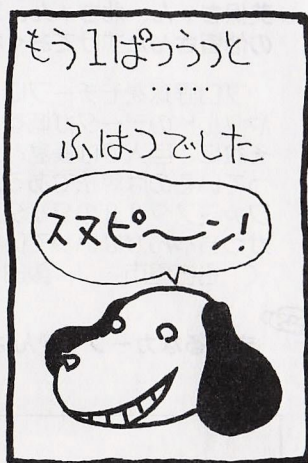 もう1ぱつうっと
.....
ふはつでした
スヌピ〜ン!